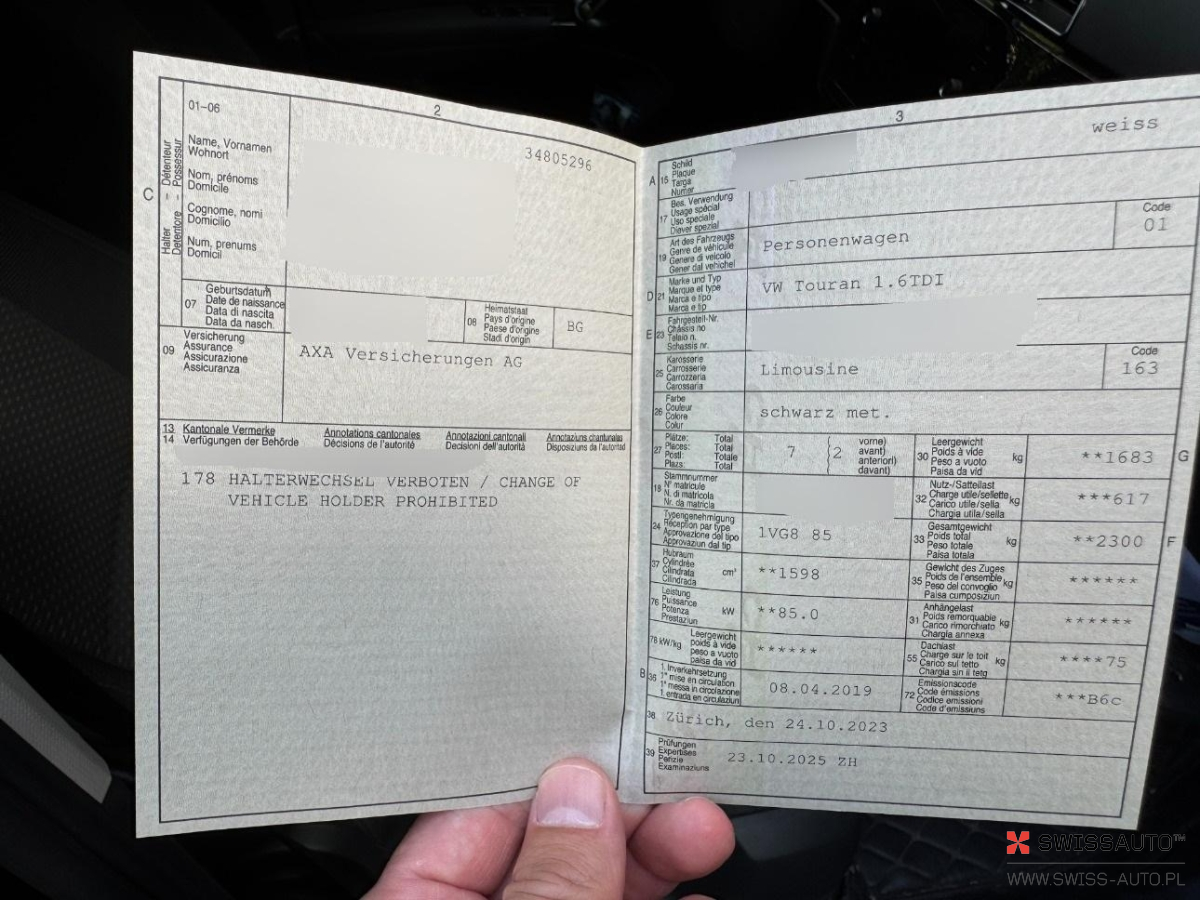 2
01-06
34805296
C
Halter - Détenteur
Detentore - Possessur
Name, Vornamen
Wohnort
Nom, prénoms
Domicile
Cognome, nomi
Domicilio
Num, prenums
Domicil
07
Geburtsdatum
Date de naissance
Data di nascita
Data da nasch.
08
Heimatstaat
Pays d'origine
Paese d'origine
Stadi d'origin
BG
09
Versicherung
Assurance
Assicurazione
Assicuranza
AXA Versicherungen AG
13 Kantonale Vermerke Annotations cantonales Annotazioni cantonali Annotaziuns chantunalas
14 Verfügungen der Behörde Décisions de l'autorité Decisioni dell'autorità Disposiziuns da l'autoritad
178 HALTERWECHSEL VERBOTEN / CHANGE OF
VEHICLE HOLDER PROHIBITED
3
weiss
A 15
Schild
Plaque
Targa
Numer
17
Bes. Verwendung
Usage spécial
Uso speciale
Diever spezial
19
Art des Fahrzeugs
Genre de véhicule
Genere di veicolo
Gener dal vehichel
Personenwagen
Code
01
D 21
Marke und Typ
Marque et type
Marca e tipo
Marca e tip
VW Touran 1.6TDI
E 23
Fahrgestell-Nr.
Châssis no
Telaio n.
Schassis nr.
25
Karosserie
Carrosserie
Carrozzeria
Carossaria
Limousine
Code
163
26
Farbe
Couleur
Colore
Colur
schwarz met.
27
Plätze: Total
Places: Total
Posti: Totale
Plazs: Total
7 (2
vorne)
avant)
anteriori)
davant)
30
Leergewicht
Poids à vide
Peso a vuoto
Paisa da vid
kg
**1683
G
18
Stammnummer
N° matricule
N. di matricola
Nr. da matricla
32
Nutz-/Sattellast
Charge utile/sellette
Carico utile/sella
Chargia utila/sella
kg
***617
24
Typengenehmigung
Réception par type
Approvazione del tipo
Approvaziun dal tip
1VG8 85
33
Gesamtgewicht
Poids total
Peso totale
Paisa totala
kg
**2300
F
37
Hubraum
Cylindrée
Cilindrata
Cilindrada
cm³
**1598
35
Gewicht des Zuges
Poids de l'ensemble
Peso del convoglio
Paisa cumposiziun
kg
******
76
Leistung
Puissance
Potenza
Prestaziun
kW
**85.0
31
Anhängelast
Poids remorquable
Carico rimorchiato
Chargia annexa
kg
******
78 kW/kg
Leergewicht
poids à vide
peso a vuoto
paisa da vid
******
55
Dachlast
Charge sur le toit
Carico sul tetto
Chargia sin il tetg
kg
****75
B 36
1. Inverkehrsetzung
1re mise en circulation
1a messa in circolazione
1. entrada en circulaziun
08.04.2019
72
Emissionscode
Code émissions
Codice emissioni
Code d'emissiuns
***B6c
38
Zürich, den 24.10.2023
39
Prüfungen
Expertises
Perizie
Examinaziuns
23.10.2025 ZH
SWISSAUTO™
WWW.SWISS-AUTO.PL